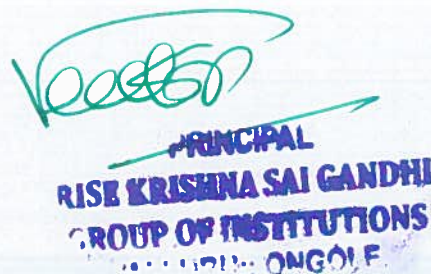 PRINCIPAL
RISE KRISHNA SAI GANDHI
GROUP OF INSTITUTIONS
ONGOLE